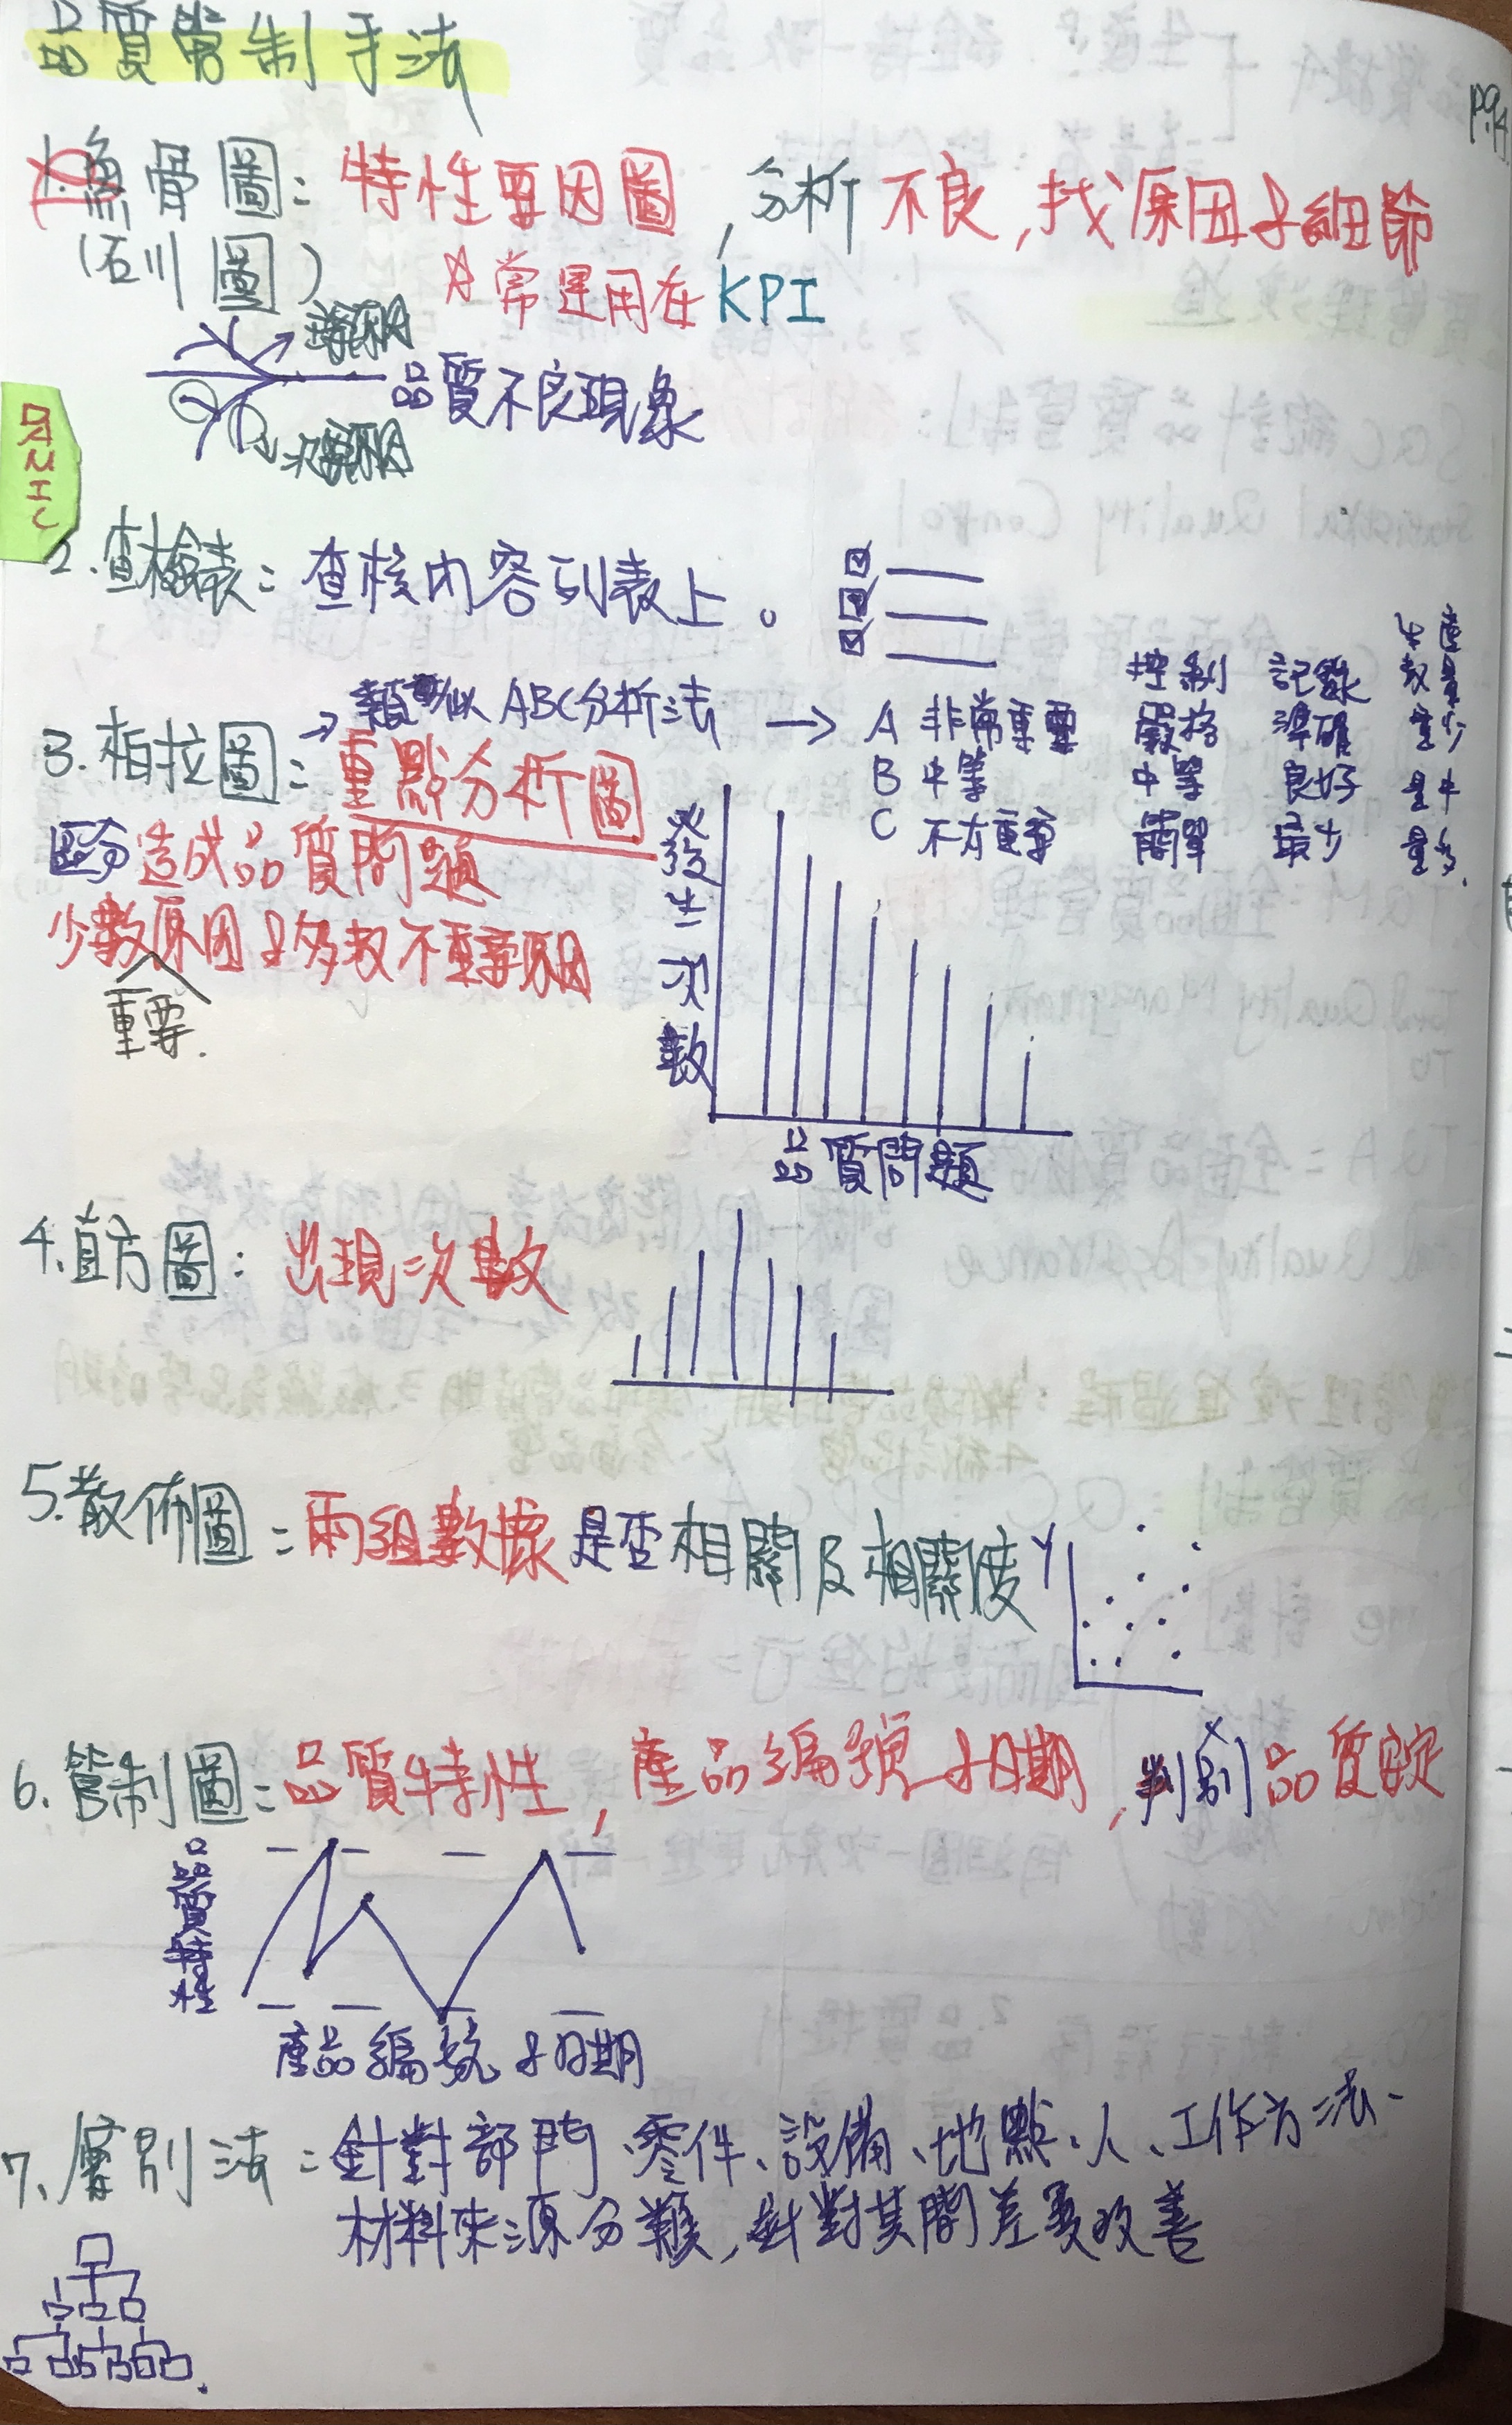 品質管制手法
1.魚骨圖：特性要因圖，分析不良，找原因及細節
(石川圖) 常運用在KPI
主要原因
品質不良現象
次要原因
2.查檢表：查核內容列表上。
3.柏拉圖：重點分析圖
→類似ABC分析法 →
控制 記錄 數量
A 非常重要 嚴格 準確 量少
B 中等 中等 良好 量中
C 不太重要 簡單 最少 量多.
區分造成品質問題
少數原因及多數不重要原因
重要.
發生次數
品質問題
4.直方圖：出現次數
5.散佈圖：兩組數據是否相關及相關度
Y
X
6.管制圖：品質特性，產品編號及日期，判別品質安定
品質特性
產品編號及日期
7.層別法：針對部門、零件、設備、地點、人、工作方法、
材料來源分類，針對其間差異改善